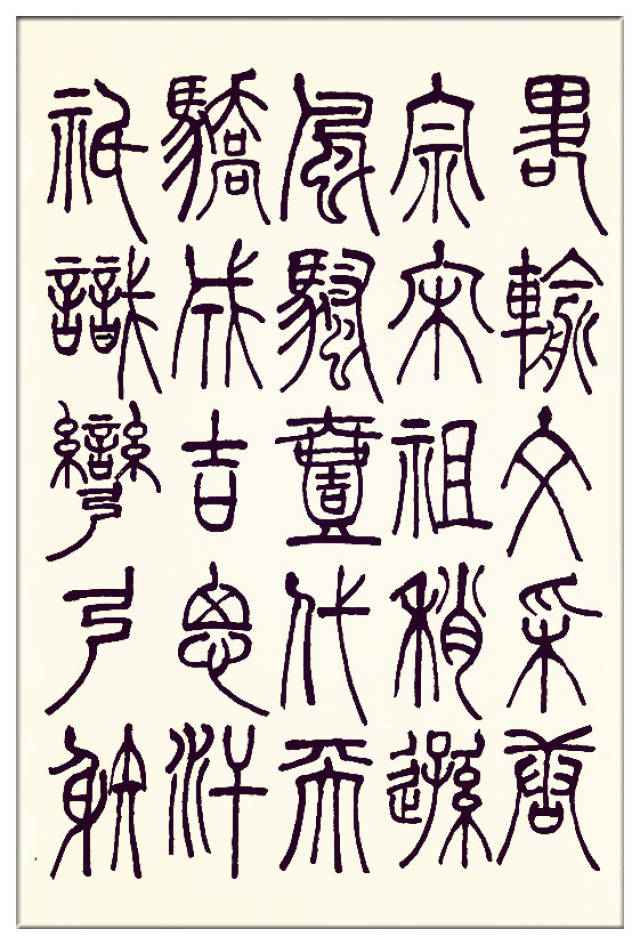 略輸文采唐
宗宋祖稍遜
風騷壹代天
驕成吉思汗
祇識彎弓射